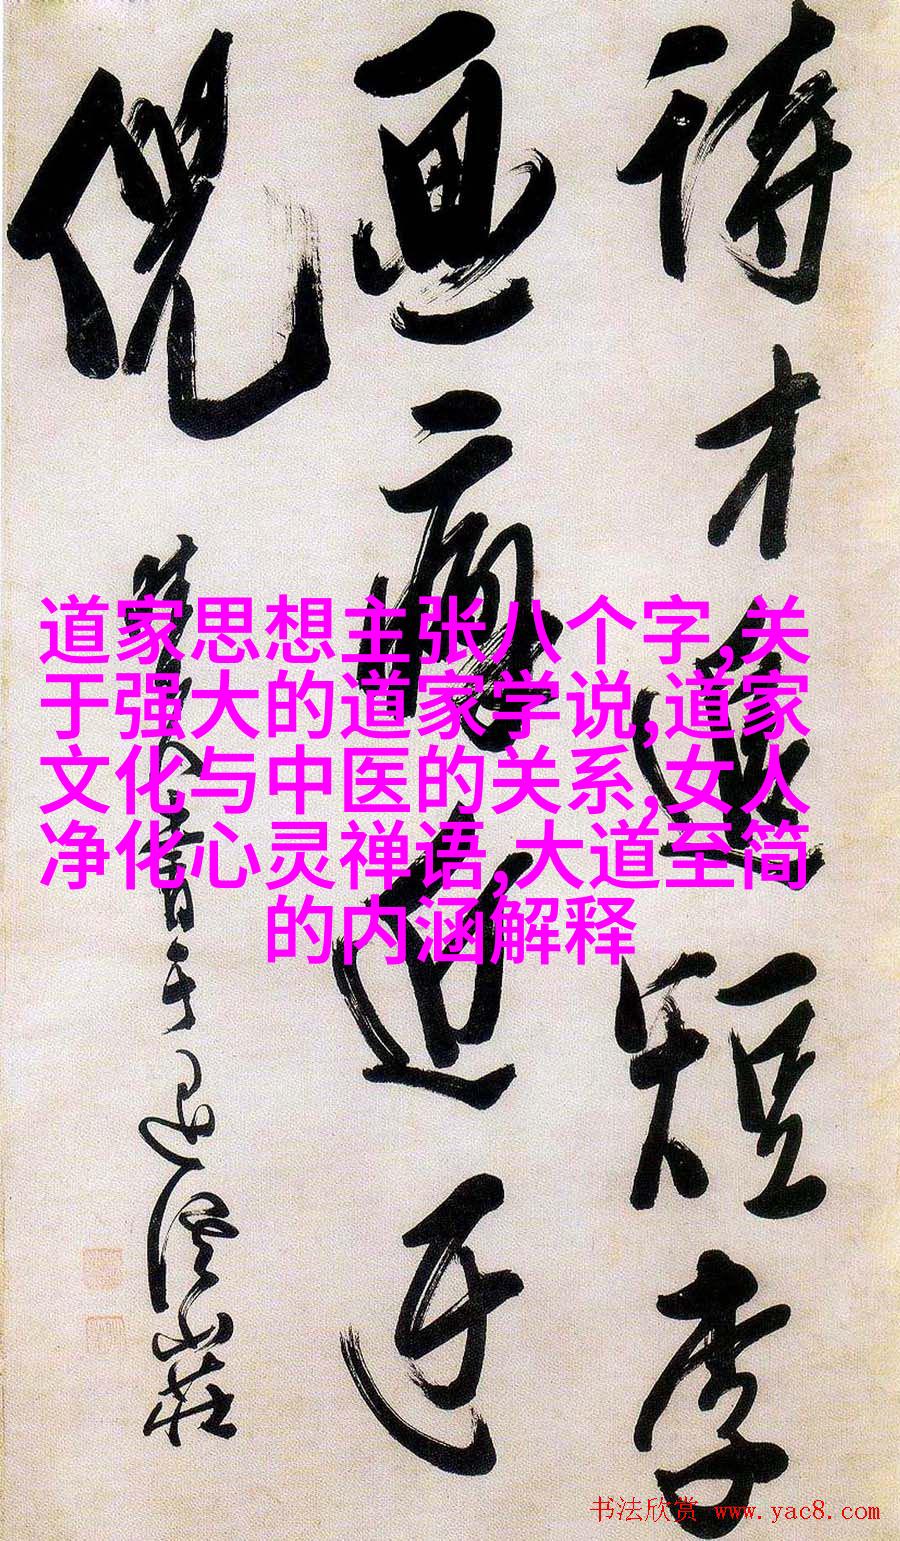 詩才短李
画迂
倪
山莊
道家思想主张八个字,关
于强大的道家学说,道家
文化与中医的关系,女人
净化心灵禅语,大道至简
的内涵解释
书法欣赏 www.yac8.com